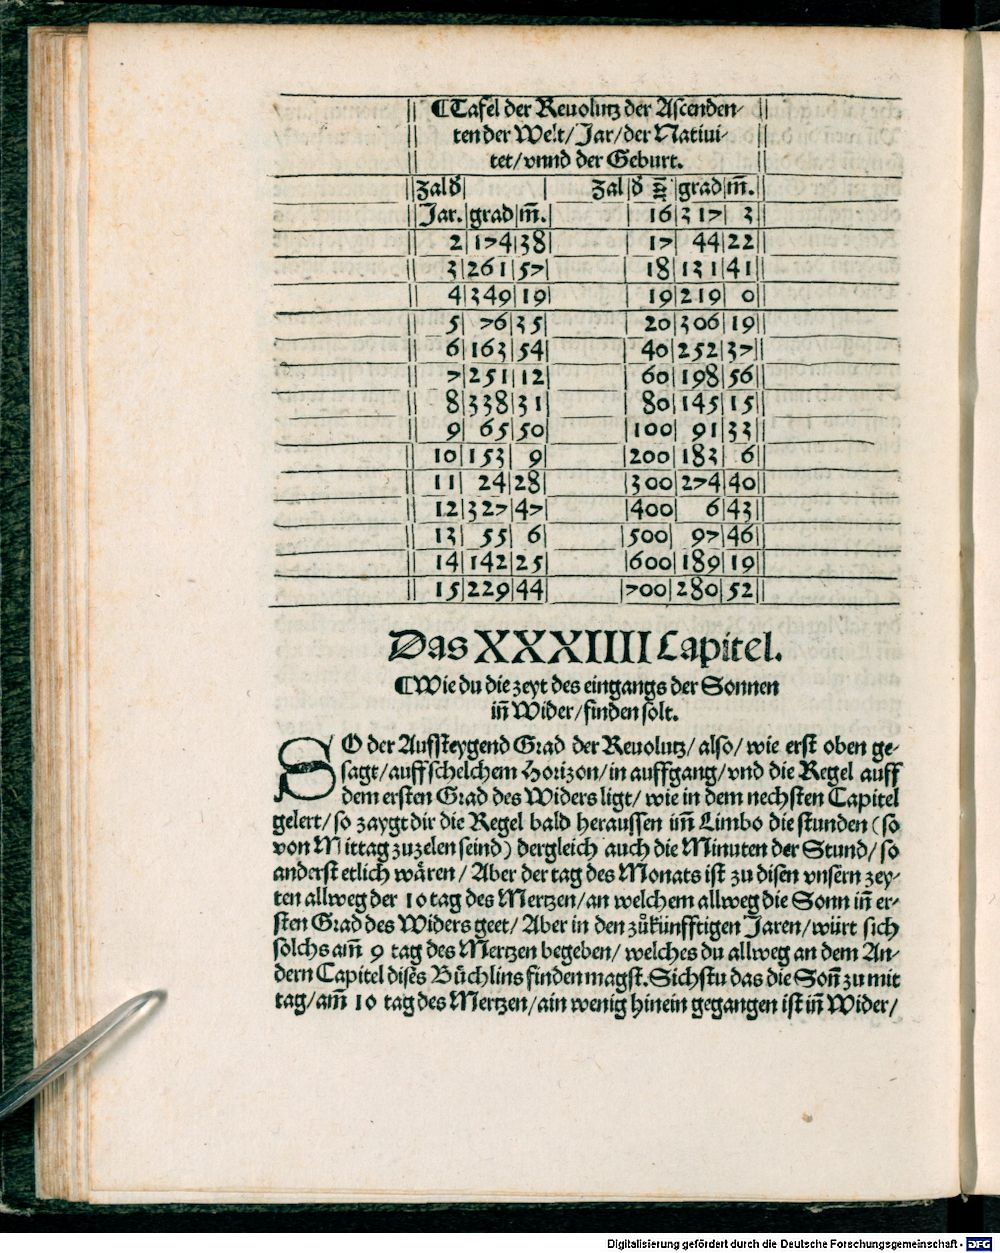 ¶Tafel der Reuolutz der Ascenden/
ten der Welt/ Jar/ der Natiui-
tet/ vnnd der Geburt.
Zal đ | | Zal | đ | grad | m̄.
Jar. | grad | m̄. | 16 | 317 | 3
2 | 174 | 38 | 17 | 44 | 22
3 | 261 | 57 | 18 | 131 | 41
4 | 349 | 19 | 19 | 219 | 0
5 | 76 | 35 | 20 | 306 | 19
6 | 163 | 54 | 40 | 252 | 37
7 | 251 | 12 | 60 | 198 | 56
8 | 338 | 31 | 80 | 145 | 15
9 | 65 | 50 | 100 | 91 | 33
10 | 153 | 9 | 200 | 183 | 6
11 | 24 | 28 | 300 | 274 | 40
12 | 327 | 47 | 400 | 6 | 43
13 | 55 | 6 | 500 | 97 | 46
14 | 142 | 25 | 600 | 189 | 19
15 | 229 | 44 | 700 | 280 | 52
Das XXXIIII Capitel.
¶Wie du die zeyt des eingangs der Sonnen
in̄ Wider/ finden solt.
SO der Aufsteygend Grad der Reuolutz/ also/ wie erst oben ge-
sagt/ auff schelchem Horizon/ in auffgang/ vnd die Regel auff
dem ersten Grad des Widers ligt/ wie in dem nechsten Capitel
gelert/ so zaygt dir die Regel bald heraussen im̄ Limbo die stunden (so
von Mittag zuzelen seind) dergleich auch die Minuten der Stund/ so
anderst etlich wären/ Aber der tag des Monats ist zu disen vnsern zey-
ten allweg der 10 tag des Mertzen/ an welchem allweg die Sonn in̄ er-
sten Grad des Widers geet/ Aber in den zůkünfftigen Jaren/ würt sich
solchs am̄ 9 tag des Mertzen begeben/ welches du allweg an dem An-
dern Capitel dises Büchlins finden magst. Sichstu das die Son̄ zu mit
tag/ am̄ 10 tag des Mertzen/ ain wenig hinein gegangen ist in̄ Wider/
Digitalisierung gefördert durch die Deutsche Forschungsgemeinschaft - DFG